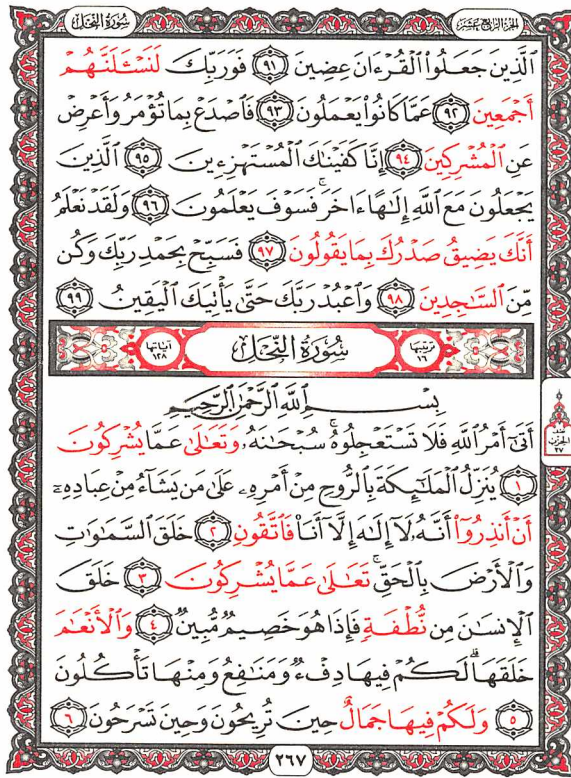 سُورَةُ النَّحْلِ
الجزء الرابع عشر
الَّذِينَ جَعَلُوا الْقُرْءَانَ عِضِينَ ٩١ فَوَرَبِّكَ لَنَسْـَٔلَنَّهُمْ
أَجْمَعِينَ ٩٢ عَمَّا كَانُوا يَعْمَلُونَ ٩٣ فَاصْدَعْ بِمَا تُؤْمَرُ وَأَعْرِضْ
عَنِ الْمُشْرِكِينَ ٩٤ إِنَّا كَفَيْنَاكَ الْمُسْتَهْزِءِينَ ٩٥ الَّذِينَ
يَجْعَلُونَ مَعَ اللَّهِ إِلَٰهًا ءَاخَرَ ۚ فَسَوْفَ يَعْلَمُونَ ٩٦ وَلَقَدْ نَعْلَمُ
أَنَّكَ يَضِيقُ صَدْرُكَ بِمَا يَقُولُونَ ٩٧ فَسَبِّحْ بِحَمْدِ رَبِّكَ وَكُن
مِّنَ السَّاجِدِينَ ٩٨ وَاعْبُدْ رَبَّكَ حَتَّىٰ يَأْتِيَكَ الْيَقِينُ ٩٩
ترتيبها ١٦ سُورَةُ النَّحْلِ آياتها ١٢٨
بِسْمِ اللَّهِ الرَّحْمَٰنِ الرَّحِيمِ
أَتَىٰ أَمْرُ اللَّهِ فَلَا تَسْتَعْجِلُوهُ ۚ سُبْحَٰنَهُۥ وَتَعَٰلَىٰ عَمَّا يُشْرِكُونَ
١ يُنَزِّلُ الْمَلَٰٓئِكَةَ بِالرُّوحِ مِنْ أَمْرِهِۦ عَلَىٰ مَن يَشَآءُ مِنْ عِبَادِهِۦٓ
أَنْ أَنذِرُوٓا أَنَّهُۥ لَآ إِلَٰهَ إِلَّآ أَنَا۠ فَاتَّقُونِ ٢ خَلَقَ السَّمَٰوَٰتِ
وَالْأَرْضَ بِالْحَقِّ ۚ تَعَٰلَىٰ عَمَّا يُشْرِكُونَ ٣ خَلَقَ
الْإِنسَٰنَ مِن نُّطْفَةٍ فَإِذَا هُوَ خَصِيمٌ مُّبِينٌ ٤ وَالْأَنْعَٰمَ
خَلَقَهَا ۗ لَكُمْ فِيهَا دِفْءٌ وَمَنَٰفِعُ وَمِنْهَا تَأْكُلُونَ
٥ وَلَكُمْ فِيهَا جَمَالٌ حِينَ تُرِيحُونَ وَحِينَ تَسْرَحُونَ ٦
٢٦٧